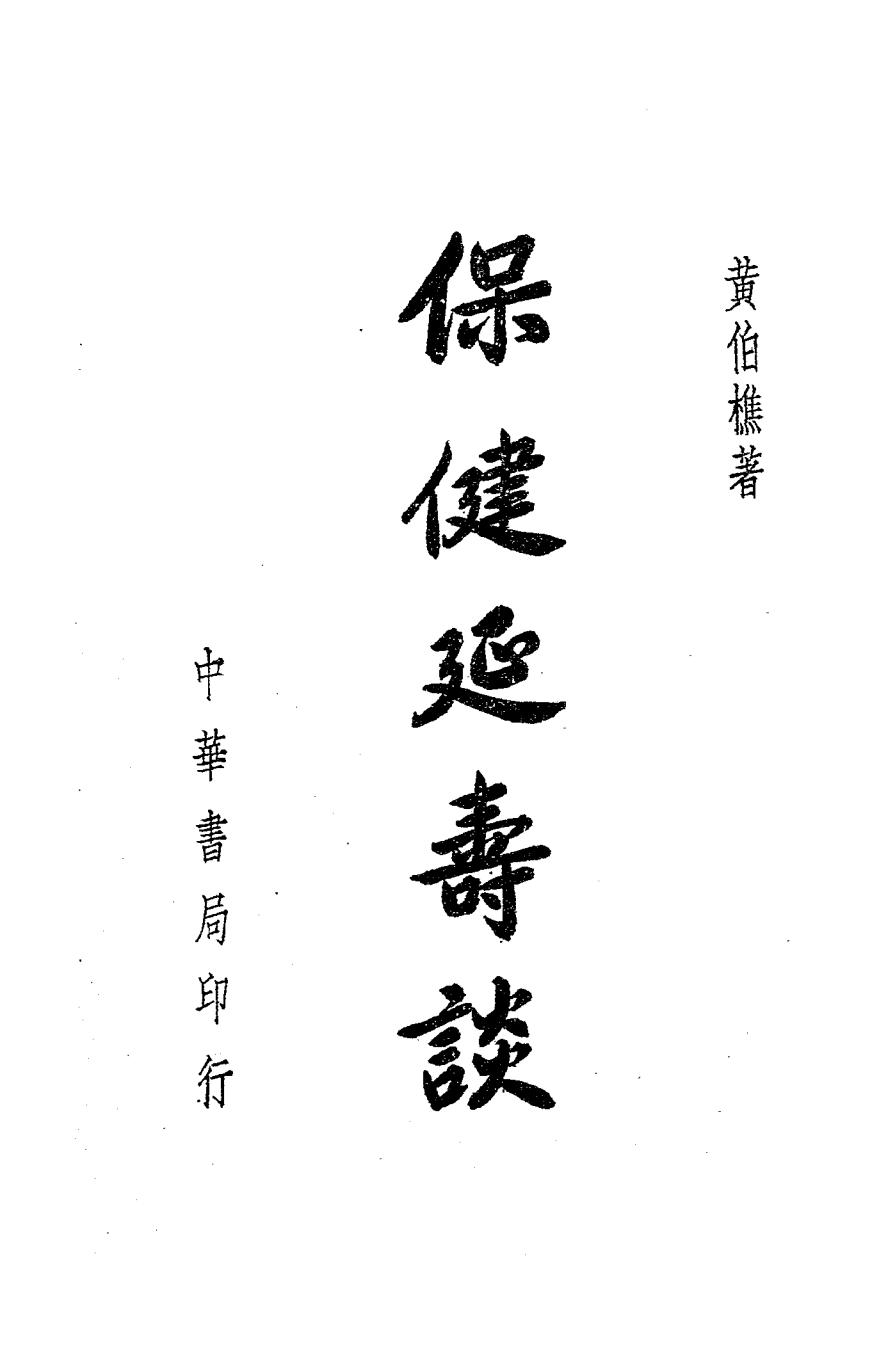 黃伯樵著
保健延壽談
中華書局印行